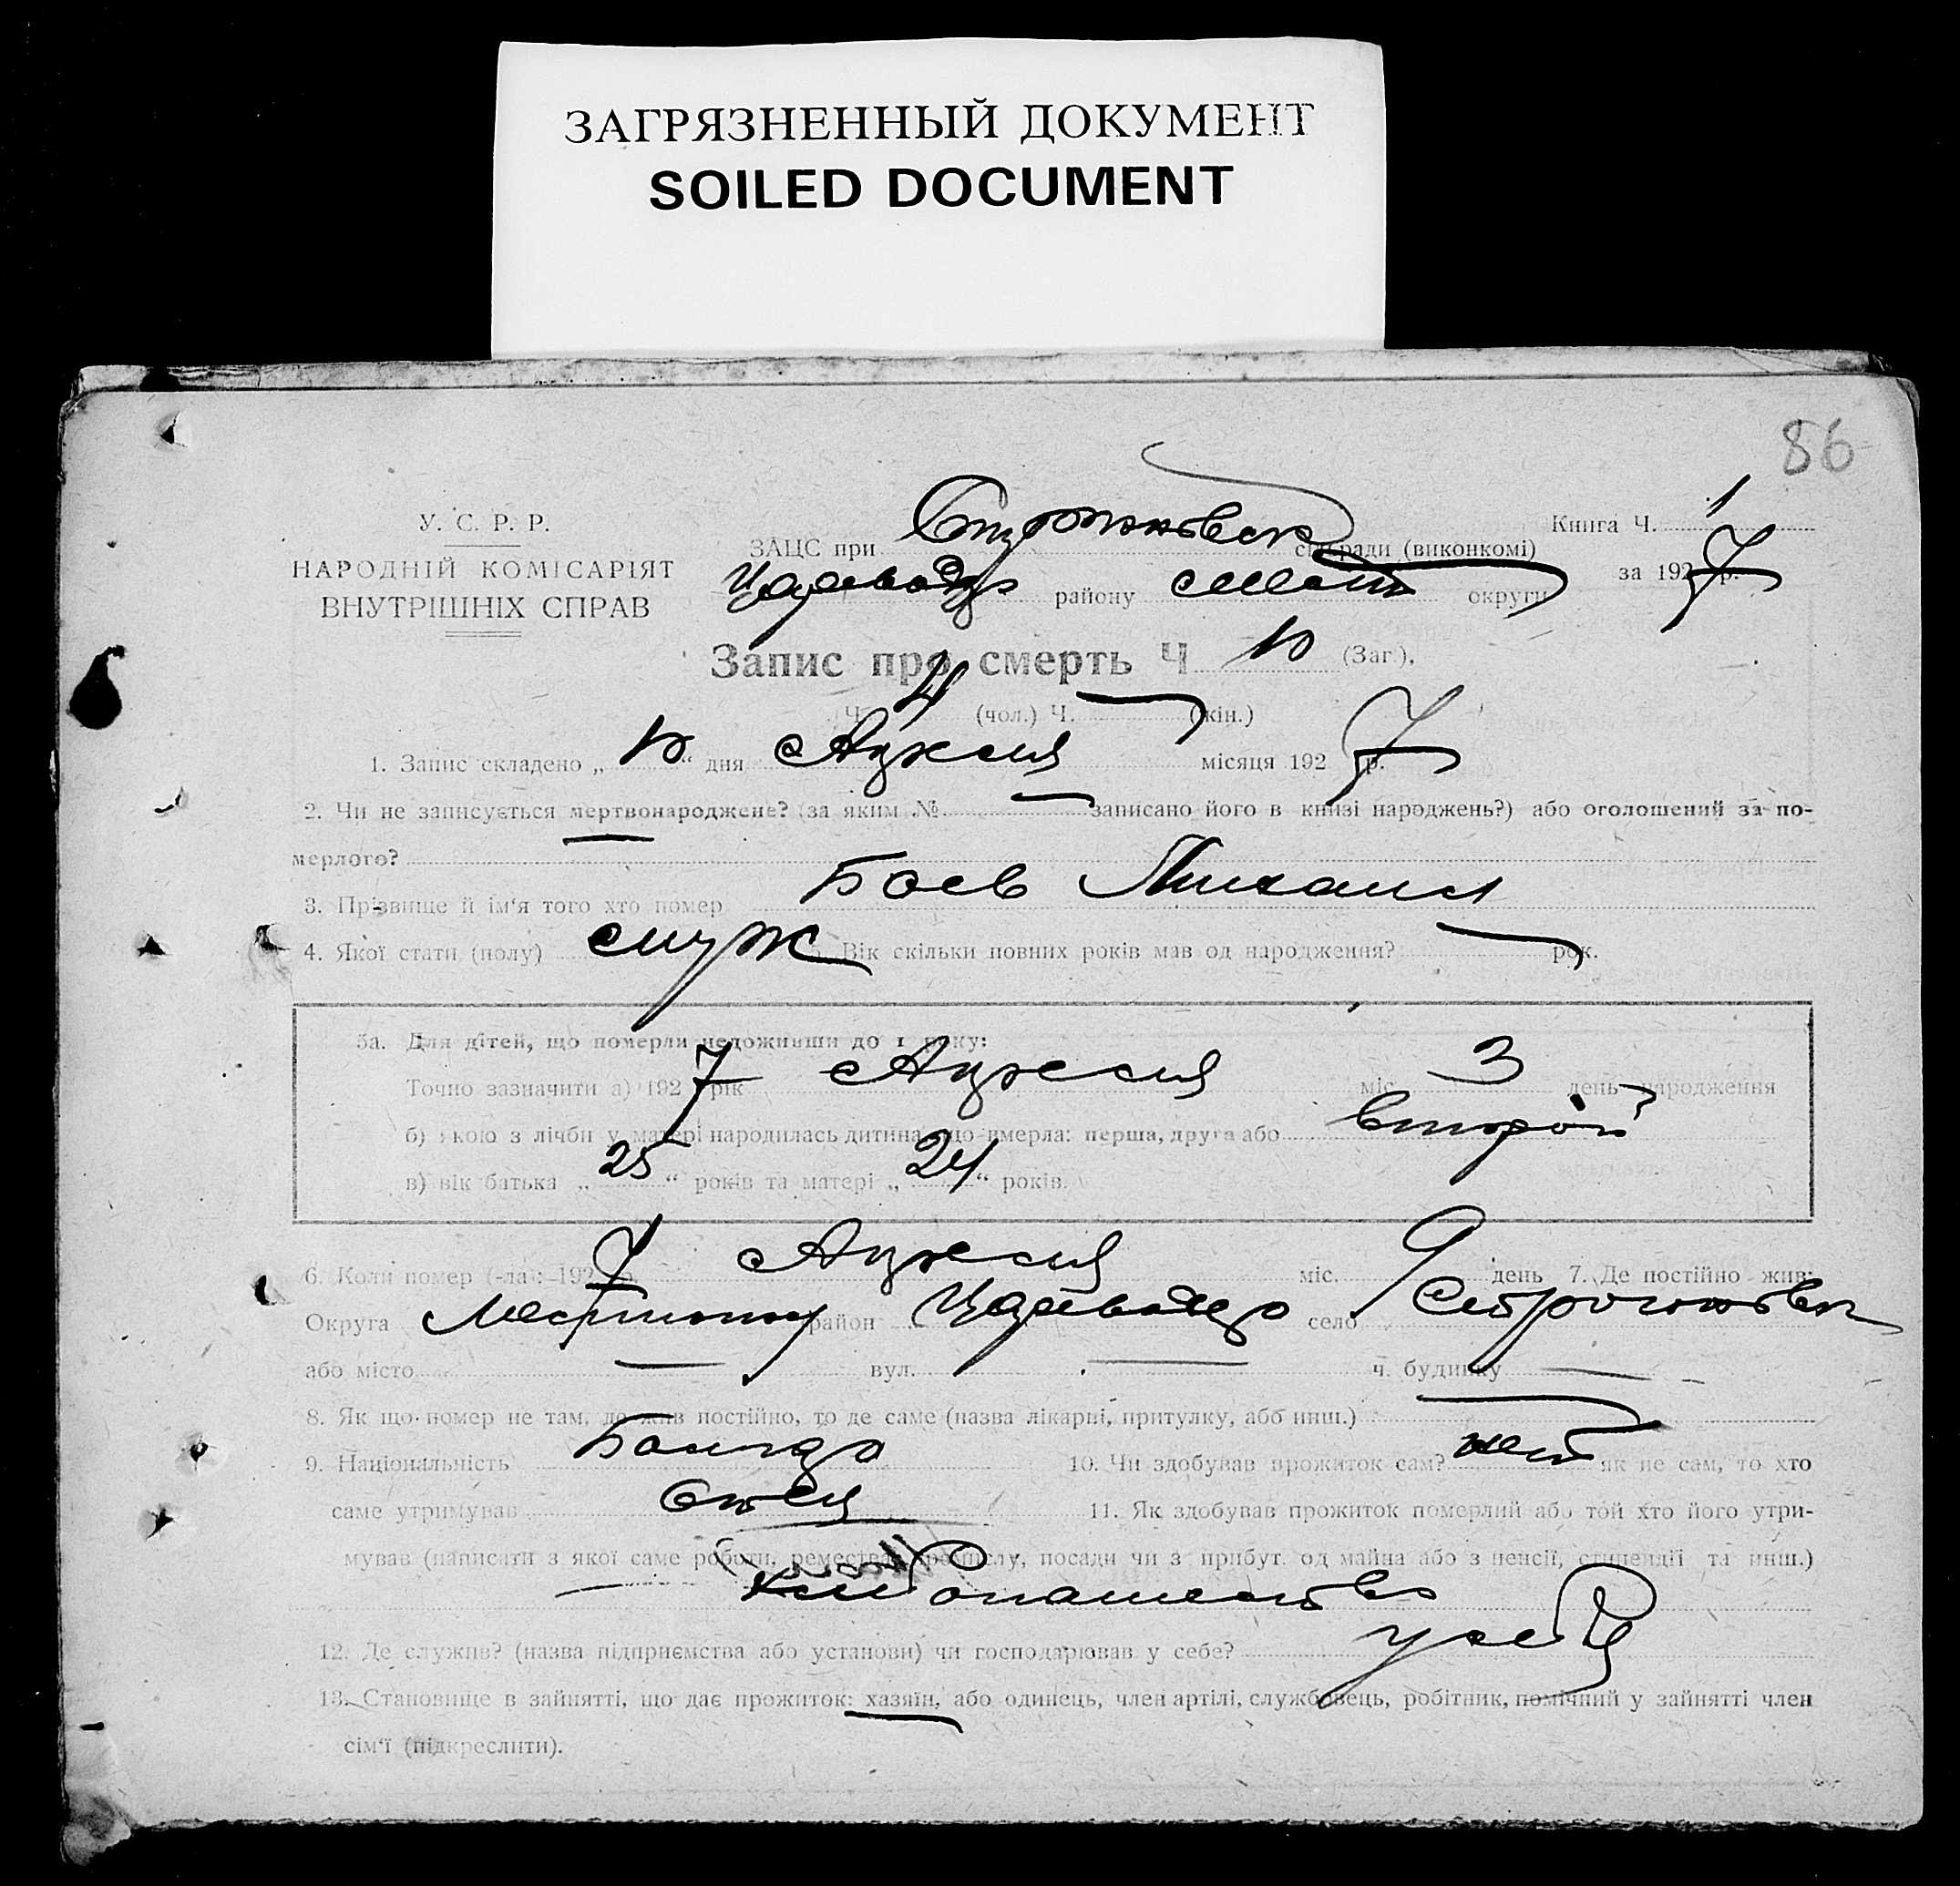 ЗАГРЯЗНЕННЫЙ ДОКУМЕНТ
SOILED DOCUMENT
86
У. С. Р. Р.
НАРОДНІЙ КОМІСАРІЯТ
ВНУТРІШНІХ СПРАВ
ЗАЦС при сільради (виконкомі)
району округи
Книга Ч. 1
за 1927 р.
Запис про смерть Ч 10 (Заг.),
Ч. 4 (чол.) Ч. — (жін.)
1. Запис складено „ 10 “ дня Апреля місяця 1927 р.
2. Чи не записується мертвонароджене? (за яким № — записано його в книзі народжень?) або оголошений за по-
мерлого? —
3. Прізвище й ім'я того хто помер Боев Михаил
4. Якої стати (полу) муж Вік скільки повних років мав од народження? — рок.
5а. Для дітей, що померли недоживши до 1 року:
Точно зазначити а) 1927 рік Апреля міс. 3 день народження
б) якою з лічби у матері народилась дитина, що вмерла: перша, друга або второй
в) вік батька „ 25 “ років та матері „ 24 “ років.
6. Коли помер (-ла): 1927 р. Апреля міс. 9 день 7. Де постійно жив:
Округа район село
або місто — вул. — ч. будинку —
8. Як що помер не там, де жив постійно, то де саме (назва лікарні, притулку, або инш.) —
9. Національність 10. Чи здобував прожиток сам? нет як не сам, то хто
саме утримував отец 11. Як здобував прожиток померлий або той хто його утри-
мував (написати з якої саме роботи, ремества, промислу, посади чи з прибут. од майна або з пенсії, стипендії та инш.)
хлебопашество
12. Де служив? (назва підприємства або установи) чи господарював у себе? у себя
13. Становище в зайнятті, що дає прожиток: хазяїн, або одинець, член артілі, службовець, робітник, помічний у зайнятті член
сім'ї (підкреслити).